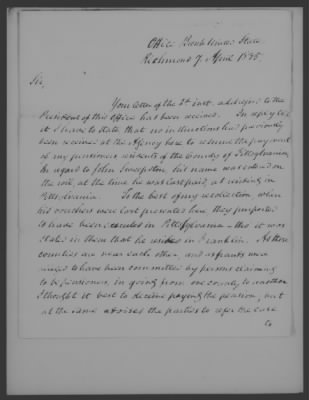 Office Bank United States
Richmond 7 April 1835.
Sir,
Your letter of the 3d inst. addressed to the
President of this Office has been received. In reply to
it I have to state that no instructions had previously
been received at the Agency here to refuse the payment
of any pensioners residents of the County of Pittsylvania.
In regard to John his name was entered on
the roll, at the time he was last paid, as residing in
Pittsylvania. To the best of my recollection, when
his vouchers were last presented here they purported
to have been executed in Pittsylvania — tho it was
stated in them that he resided in Franklin. As these
counties are near each other, and as frauds were
to have been committed by persons claiming
to be pensioners, in going from one county to another
I thought it best to decline paying the pension, but
at the same advised the parties to refer the case
to